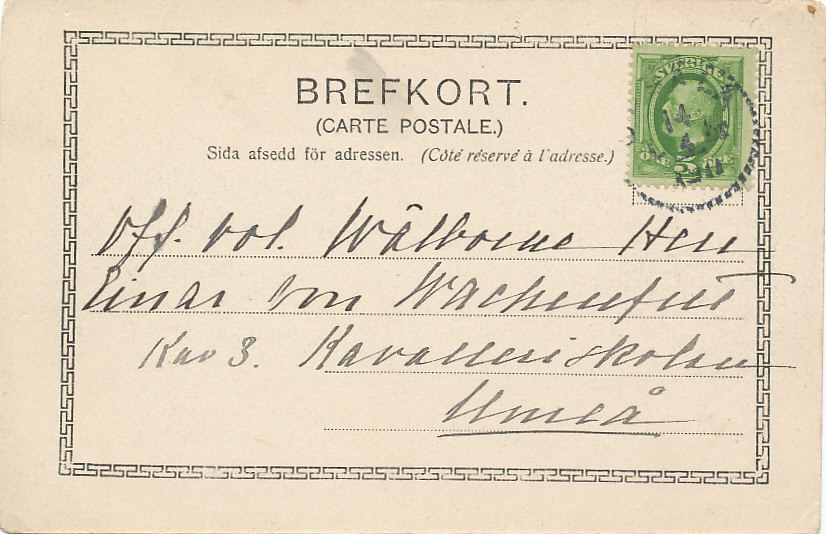 BREFKORT.
(CARTE POSTALE.)
Sida afsedd för adressen. (Côté réservé à l'adresse.)
SVERIGE
14
4
1911
Off. vol. Wälborne Herr
Einar von Wachenfelt
Kav 3. Kavalleriskolan
Umeå